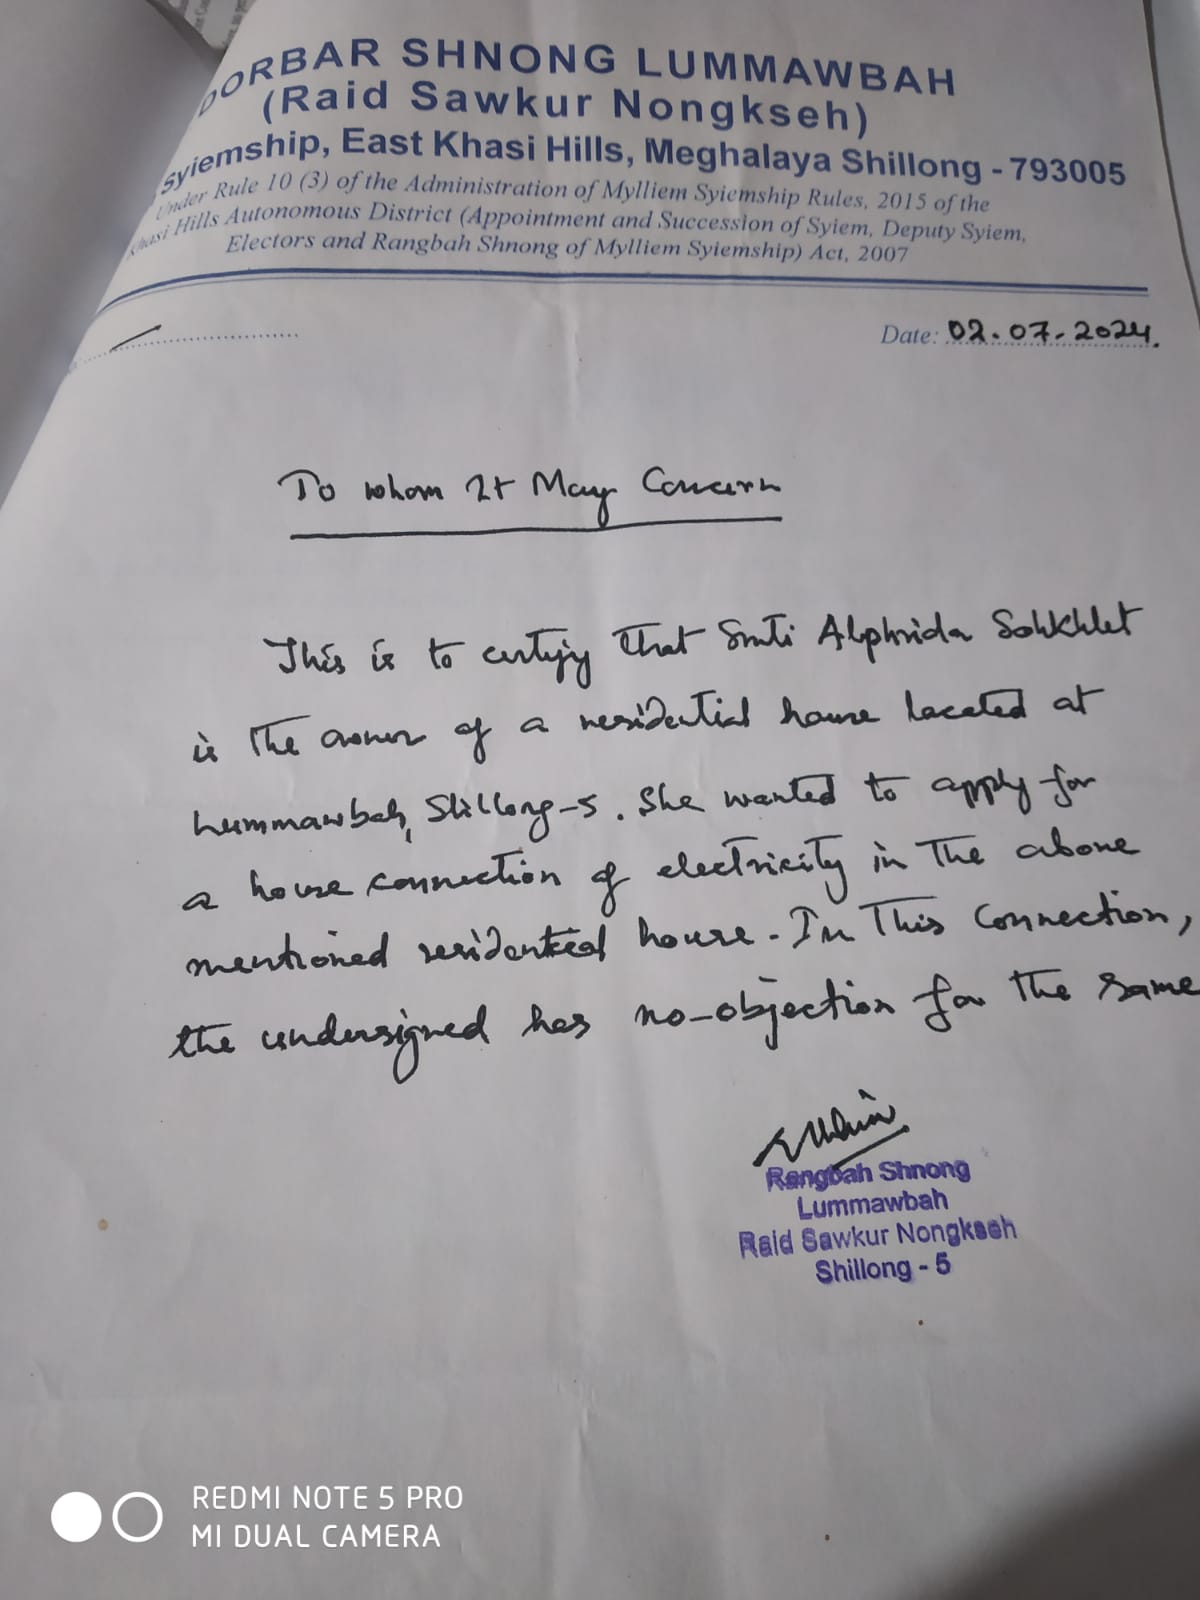 DORBAR SHNONG LUMMAWBAH
(Raid Sawkur Nongkseh)
Syiemship, East Khasi Hills, Meghalaya Shillong - 793005
Under Rule 10 (3) of the Administration of Mylliem Syiemship Rules, 2015 of the
Khasi Hills Autonomous District (Appointment and Succession of Syiem, Deputy Syiem,
Electors and Rangbah Shnong of Mylliem Syiemship) Act, 2007
Date: 02.07.2024.
To whom It May Concern
This is to certify that Smti Alphrida Sohkhlet
is the owner of a residential house located at
Lummawbah, Shillong-5. She wanted to apply for
a house connection of electricity in the above
mentioned residential house. In this connection,
the undersigned has no-objection for the same
Rangbah Shnong
Lummawbah
Raid Sawkur Nongkseh
Shillong - 5
REDMI NOTE 5 PRO
MI DUAL CAMERA